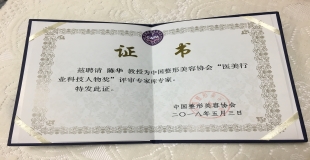 证 书
兹聘请 陈华 教授为中国整形美容协会“医美行
业科技人物奖”评审专家库专家。
特发此证。
中国整形美容协会
二〇一八年五月三日